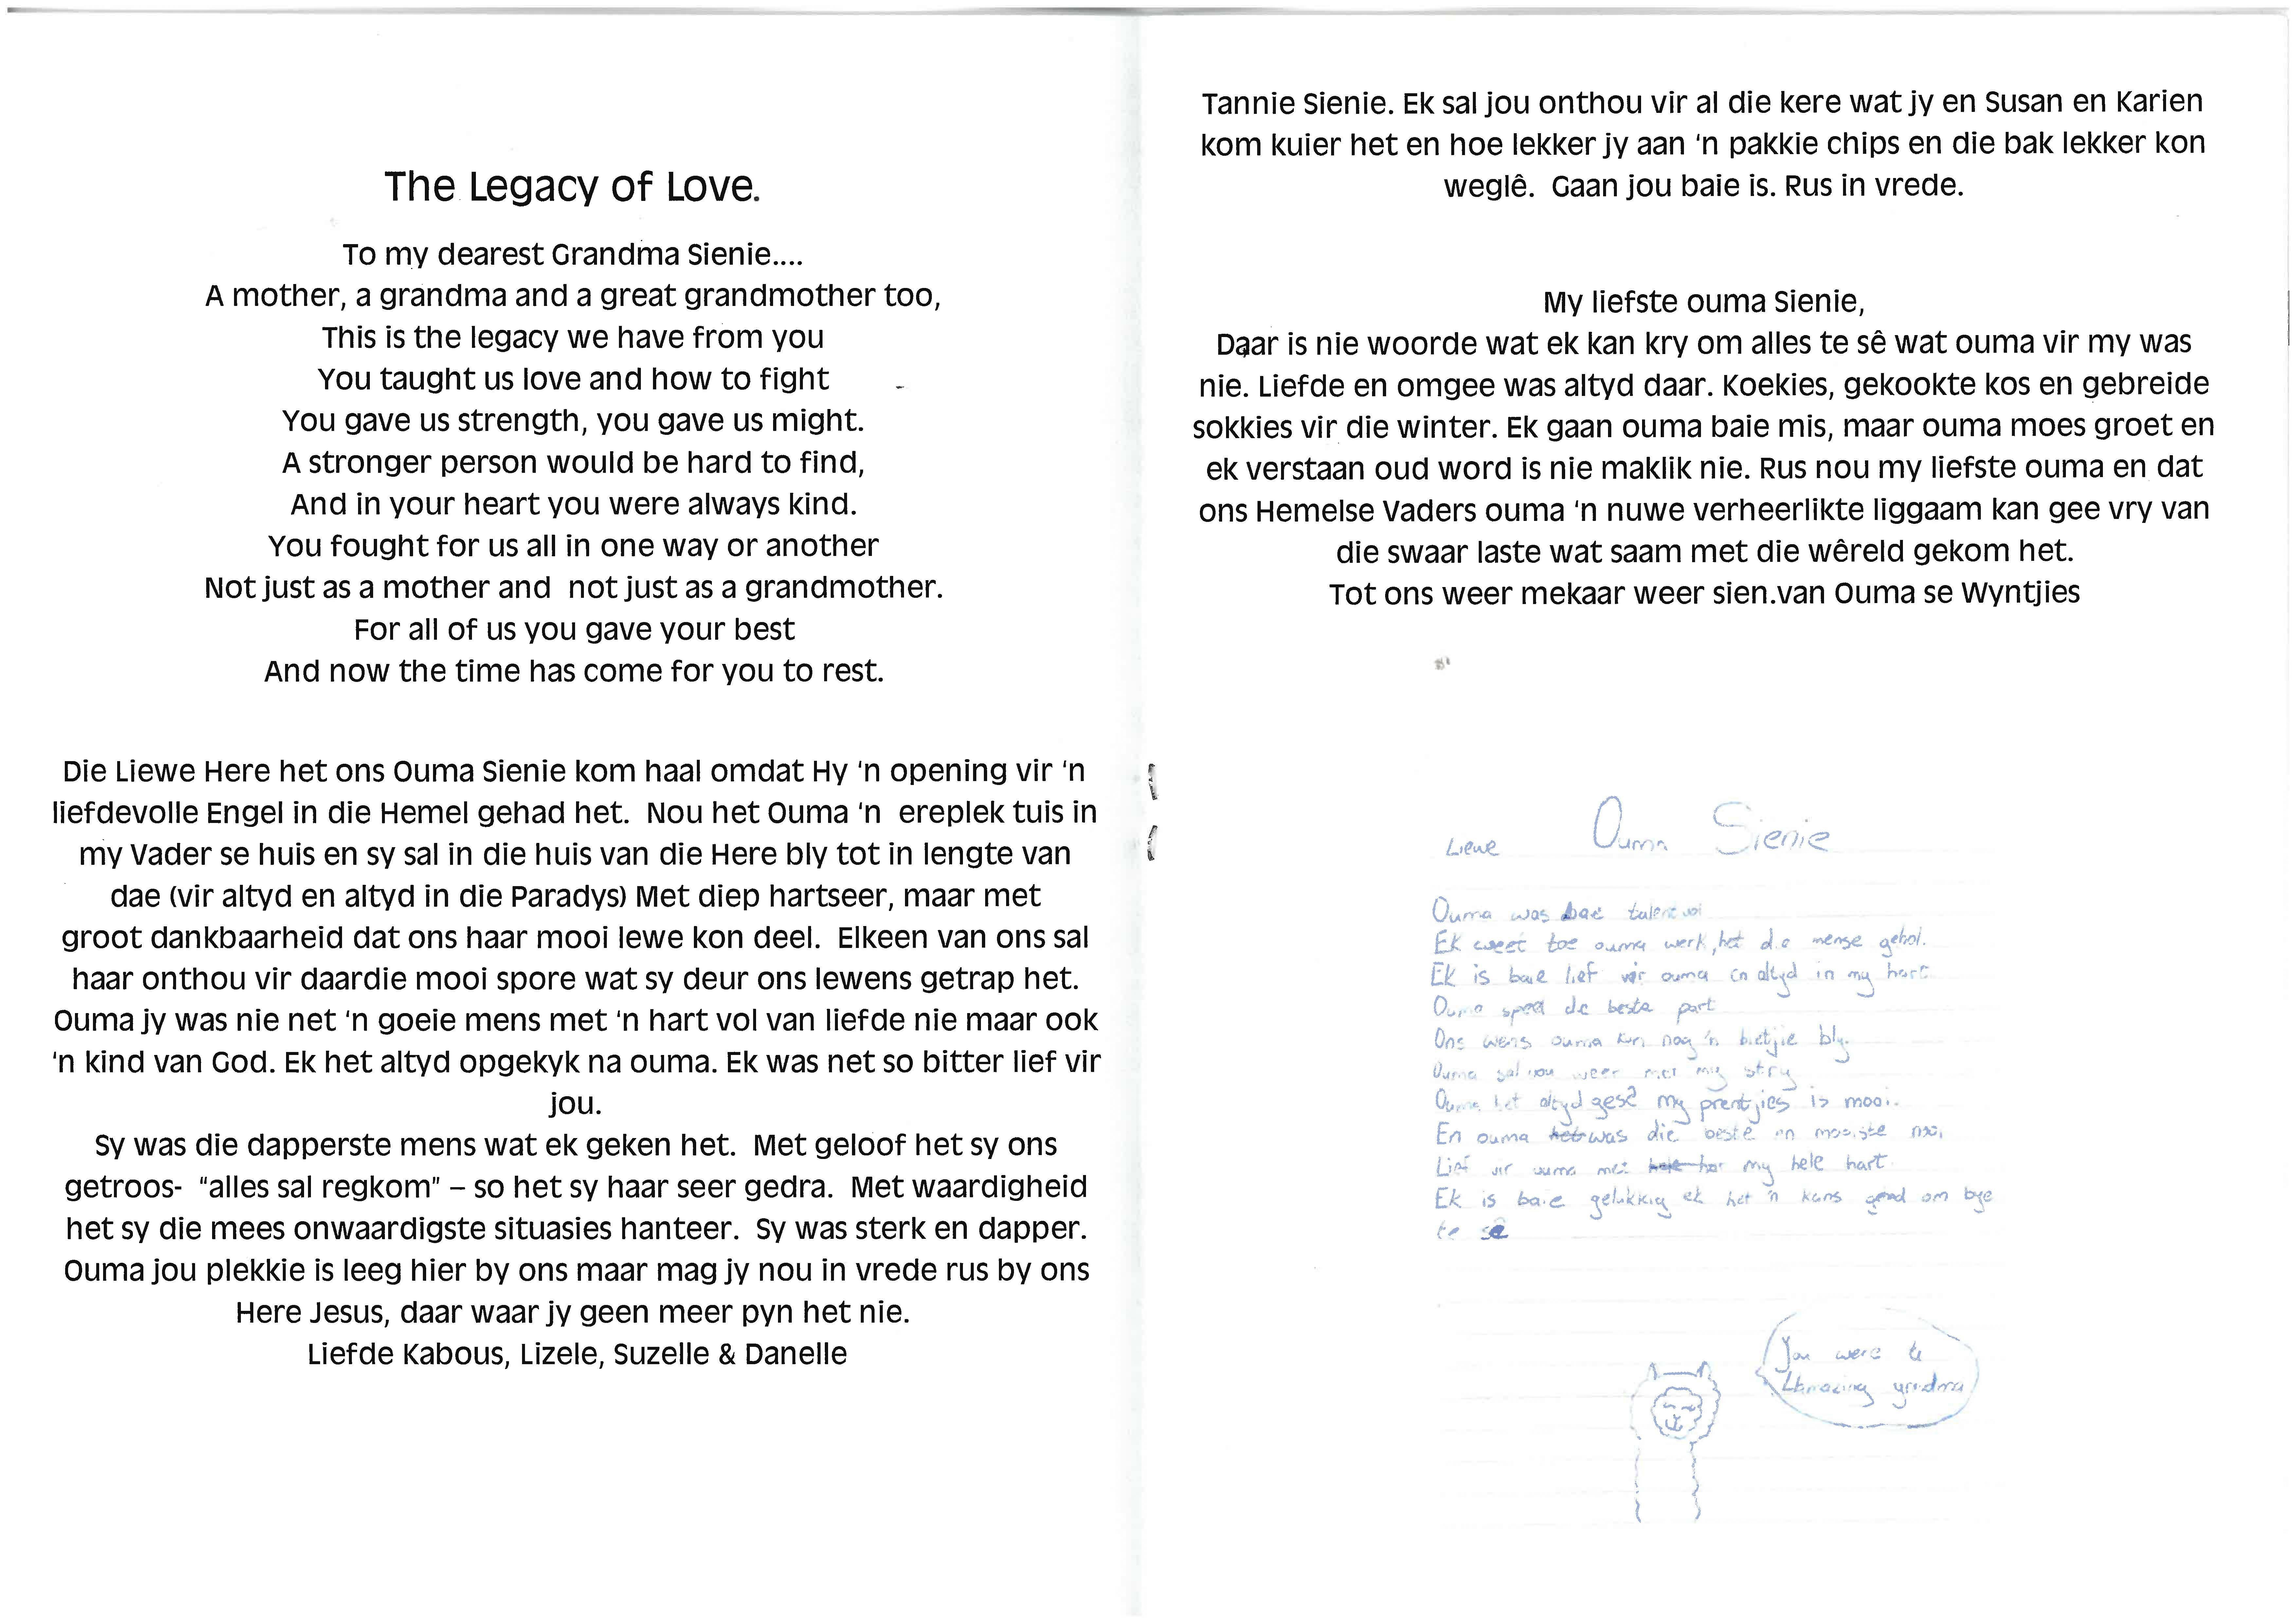 The Legacy of Love.
To my dearest Grandma Sienie....
A mother, a grandma and a great grandmother too,
This is the legacy we have from you
You taught us love and how to fight
You gave us strength, you gave us might.
A stronger person would be hard to find,
And in your heart you were always kind.
You fought for us all in one way or another
Not just as a mother and  not just as a grandmother.
For all of us you gave your best
And now the time has come for you to rest.
Die Liewe Here het ons Ouma Sienie kom haal omdat Hy ‘n opening vir ‘n
liefdevolle Engel in die Hemel gehad het.  Nou het Ouma ‘n  ereplek tuis in
my Vader se huis en sy sal in die huis van die Here bly tot in lengte van
dae (vir altyd en altyd in die Paradys) Met diep hartseer, maar met
groot dankbaarheid dat ons haar mooi lewe kon deel.  Elkeen van ons sal
haar onthou vir daardie mooi spore wat sy deur ons lewens getrap het.
Ouma jy was nie net ‘n goeie mens met ‘n hart vol van liefde nie maar ook
‘n kind van God. Ek het altyd opgekyk na ouma. Ek was net so bitter lief vir
jou.
Sy was die dapperste mens wat ek geken het.  Met geloof het sy ons
getroos-  “alles sal regkom” – so het sy haar seer gedra.  Met waardigheid
het sy die mees onwaardigste situasies hanteer.  Sy was sterk en dapper.
Ouma jou plekkie is leeg hier by ons maar mag jy nou in vrede rus by ons
Here Jesus, daar waar jy geen meer pyn het nie.
Liefde Kabous, Lizele, Suzelle & Danelle
Tannie Sienie. Ek sal jou onthou vir al die kere wat jy en Susan en Karien
kom kuier het en hoe lekker jy aan ‘n pakkie chips en die bak lekker kon
weglê.  Gaan jou baie is. Rus in vrede.
My liefste ouma Sienie,
Daar is nie woorde wat ek kan kry om alles te sê wat ouma vir my was
nie. Liefde en omgee was altyd daar. Koekies, gekookte kos en gebreide
sokkies vir die winter. Ek gaan ouma baie mis, maar ouma moes groet en
ek verstaan oud word is nie maklik nie. Rus nou my liefste ouma en dat
ons Hemelse Vaders ouma ‘n nuwe verheerlikte liggaam kan gee vry van
die swaar laste wat saam met die wêreld gekom het.
Tot ons weer mekaar weer sien.van Ouma se Wyntjies
Liewe Ouma Sienie
Ouma was bae talentvol
Ek weet toe ouma werk, het die mense gehol.
Ek is baie lief vir ouma en altyd in my hart
Ouma speel de beste part
Ons wens ouma kon nog 'n bietjie bly.
Ouma sal nou weer met my stry
Ouma het altyd gesê my prentjies is mooi.
En ouma was die beste en mooiste nooi
Lief vir ouma met my hele hart.
Ek is baie gelukkig ek het 'n kans gehad om bye
te sê
You were a
Llamazing grandma